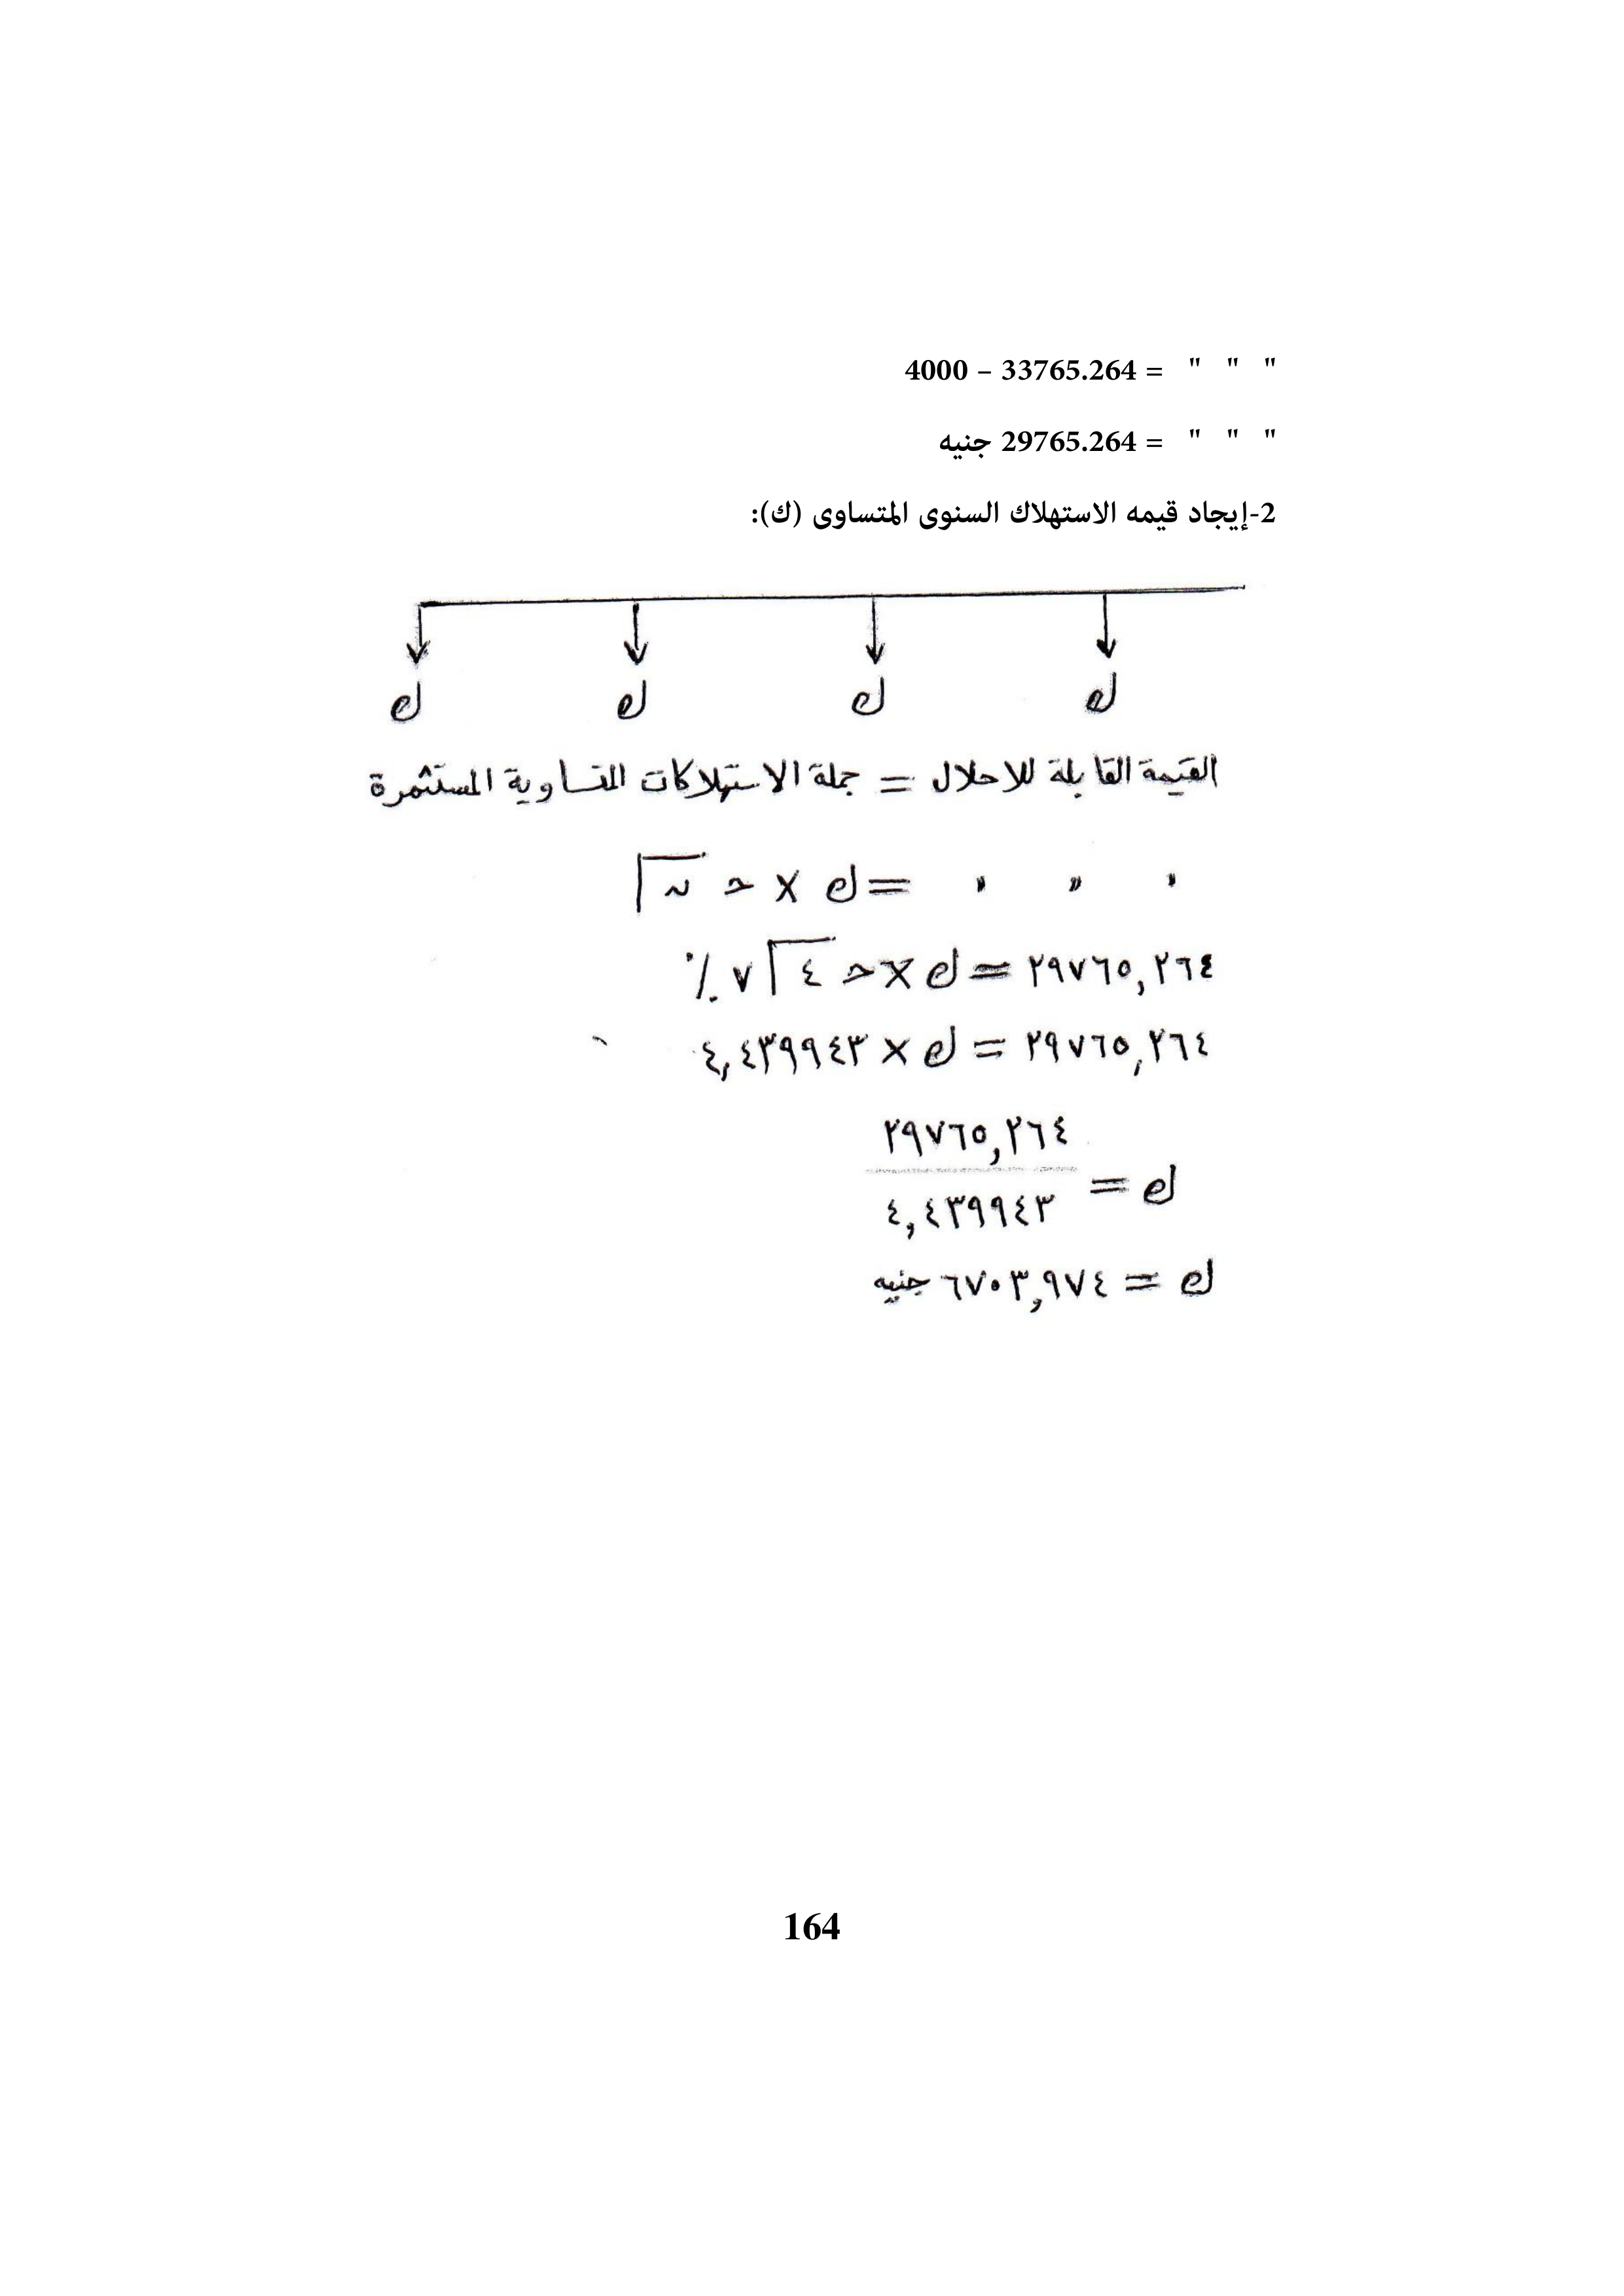 " " " = 33765.264 – 4000
" " " = 29765.264 جنيه
2-إيجاد قيمه الاستهلاك السنوى المتساوى (ك):
ك ك ك ك
القيمة القابلة للاحلال = جملة الاستهلاكات المتساوية المستثمرة
" " " = ك × حـ ن
٢٩٧٦٥,٢٦٤ = ك × حـ ٤ ٧٪
٢٩٧٦٥,٢٦٤ = ك × ٤,٤٣٩٩٤٣
٢٩٧٦٥,٢٦٤
ك =
٤,٤٣٩٩٤٣
ك = ٦٧٠٣,٩٧٤ جنيه
164